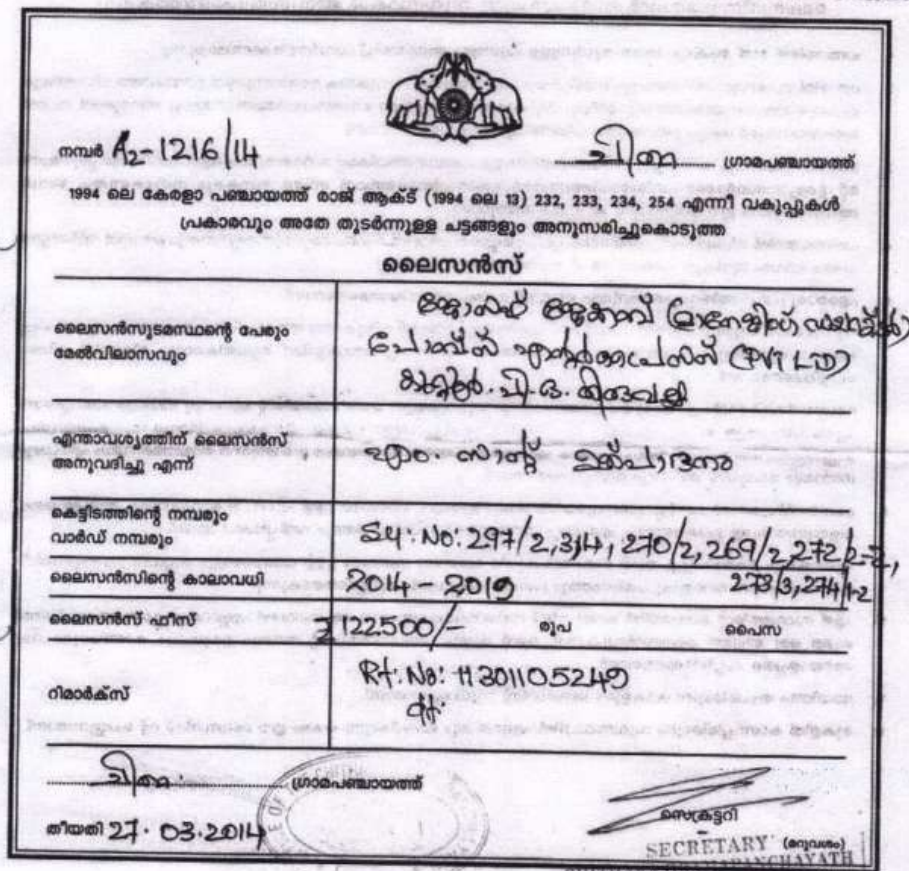 നമ്പർ A2-1216/14 ചിതറ ഗ്രാമപഞ്ചായത്ത്
1994 ലെ കേരളാ പഞ്ചായത്ത് രാജ് ആക്ട് (1994 ലെ 13) 232, 233, 234, 254 എന്നീ വകുപ്പുകൾ
പ്രകാരവും അതേ തുടർന്നുള്ള ചട്ടങ്ങളും അനുസരിച്ചുകൊടുത്ത
ലൈസൻസ്
ലൈസൻസുടമസ്ഥന്റെ പേരും
മേൽവിലാസവും
ജോസഫ് ജേക്കബ് (മാനേജിംഗ് ഡയറക്ടർ)
പോബ്സ് എന്റർപ്രൈസസ് (PVT LTD)
പി.ഒ. തിരുവല്ല
എന്താവശ്യത്തിന് ലൈസൻസ്
അനുവദിച്ചു എന്ന്
എം. സാന്റ് ഉത്പാദനം
കെട്ടിടത്തിന്റെ നമ്പരും
വാർഡ് നമ്പരും
Sy: No: 297/2,3,4, 270/2, 269/2, 272/2-2,
273/3, 274/1-2
ലൈസൻസിന്റെ കാലാവധി 2014 - 2019
ലൈസൻസ് ഫീസ് 122.500/- രൂപ പൈസ
റിമാർക്സ്
Rt: No: 11301105249
dt:
ചിതറ ഗ്രാമപഞ്ചായത്ത്
തീയതി 27.03.2014
സെക്രട്ടറി
(മറുവശം)
SECRETARY